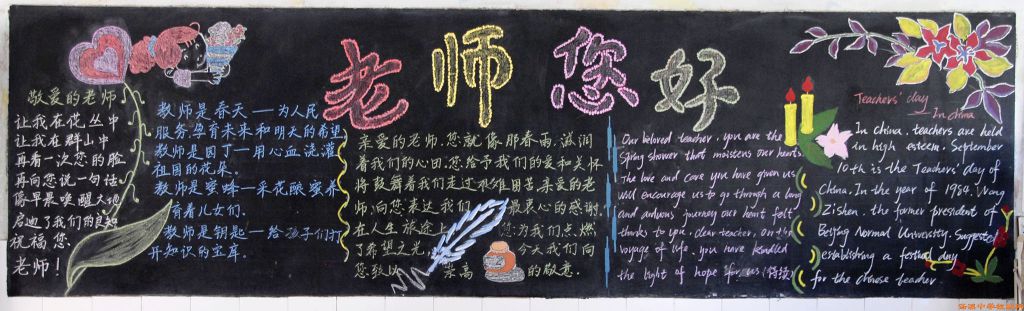 老师您好
敬爱的老师
让我在花丛中
让我在群山中
再看一次您的脸
再向您说一句话
像早晨唤醒大地
启迪了我们的良知
祝福您:
老师!
教师是春天——为人民
服务,孕育未来和明天的希望
教师是园丁——用心血浇灌
祖国的花朵。
教师是蜜蜂——采花酿蜜养
育着儿女们.
教师是钥匙——给孩子们打
开知识的宝库.
亲爱的老师,您就像那春雨,滋润
着我们的心田,您给予我们的爱和关怀
将鼓舞着我们走过艰难困苦,亲爱的老
师,向您表达我们 最衷心的感谢.
在人生旅途上 您为我们点燃
了希望之光, 今天我们向
您致以 崇高 的敬意.
Our beloved teacher, you are the
Spring shower that moistens our hearts.
The love and care you have given us
will encourage us to go through a long
and arduous journey our heart felt
thanks to you, dear teacher, on the
voyage of life, you have kindled
the light of hope for us
Teachers' day
In china
In china, teachers are held
in high esteem. September
10th is the Teachers' day of
China. In the year of 1984. Wang
Zishen, the former president of
Beijing Normal University. Suggested
establishing a festival day
for the chinese teacher